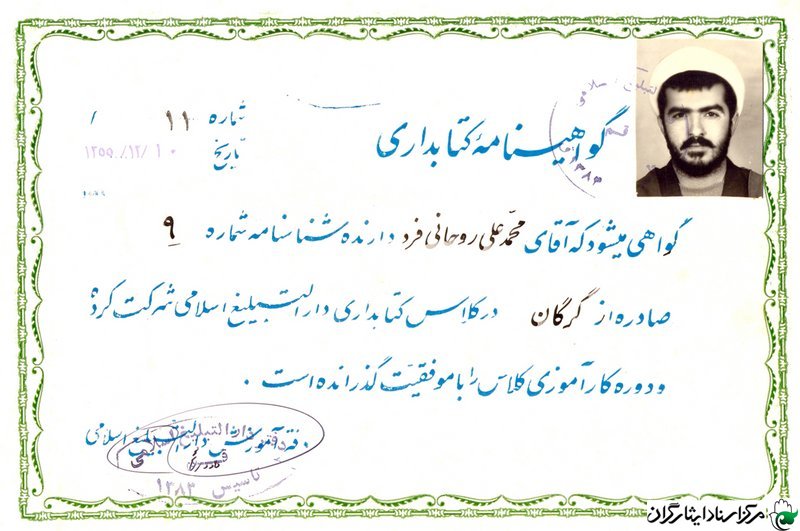 شماره ۱۱ /
تاریخ ۱۳۵۰/۱۲/۱۰
گواهینامهٔ کتابداری
گواهی میشود که آقای محمّد علی روحانی فرد دارنده شناسنامه شماره ۹
صادره از گرگان در کلاس کتابداری دارالتبلیغ اسلامی شرکت کرده
و دوره کارآموزی کلاس را با موفقیّت گذرانده است .
دفتر آموزش دارالتبلیغ اسلامی
تاسیس ۱۳۸۳
مرکز اسناد ایثارگران